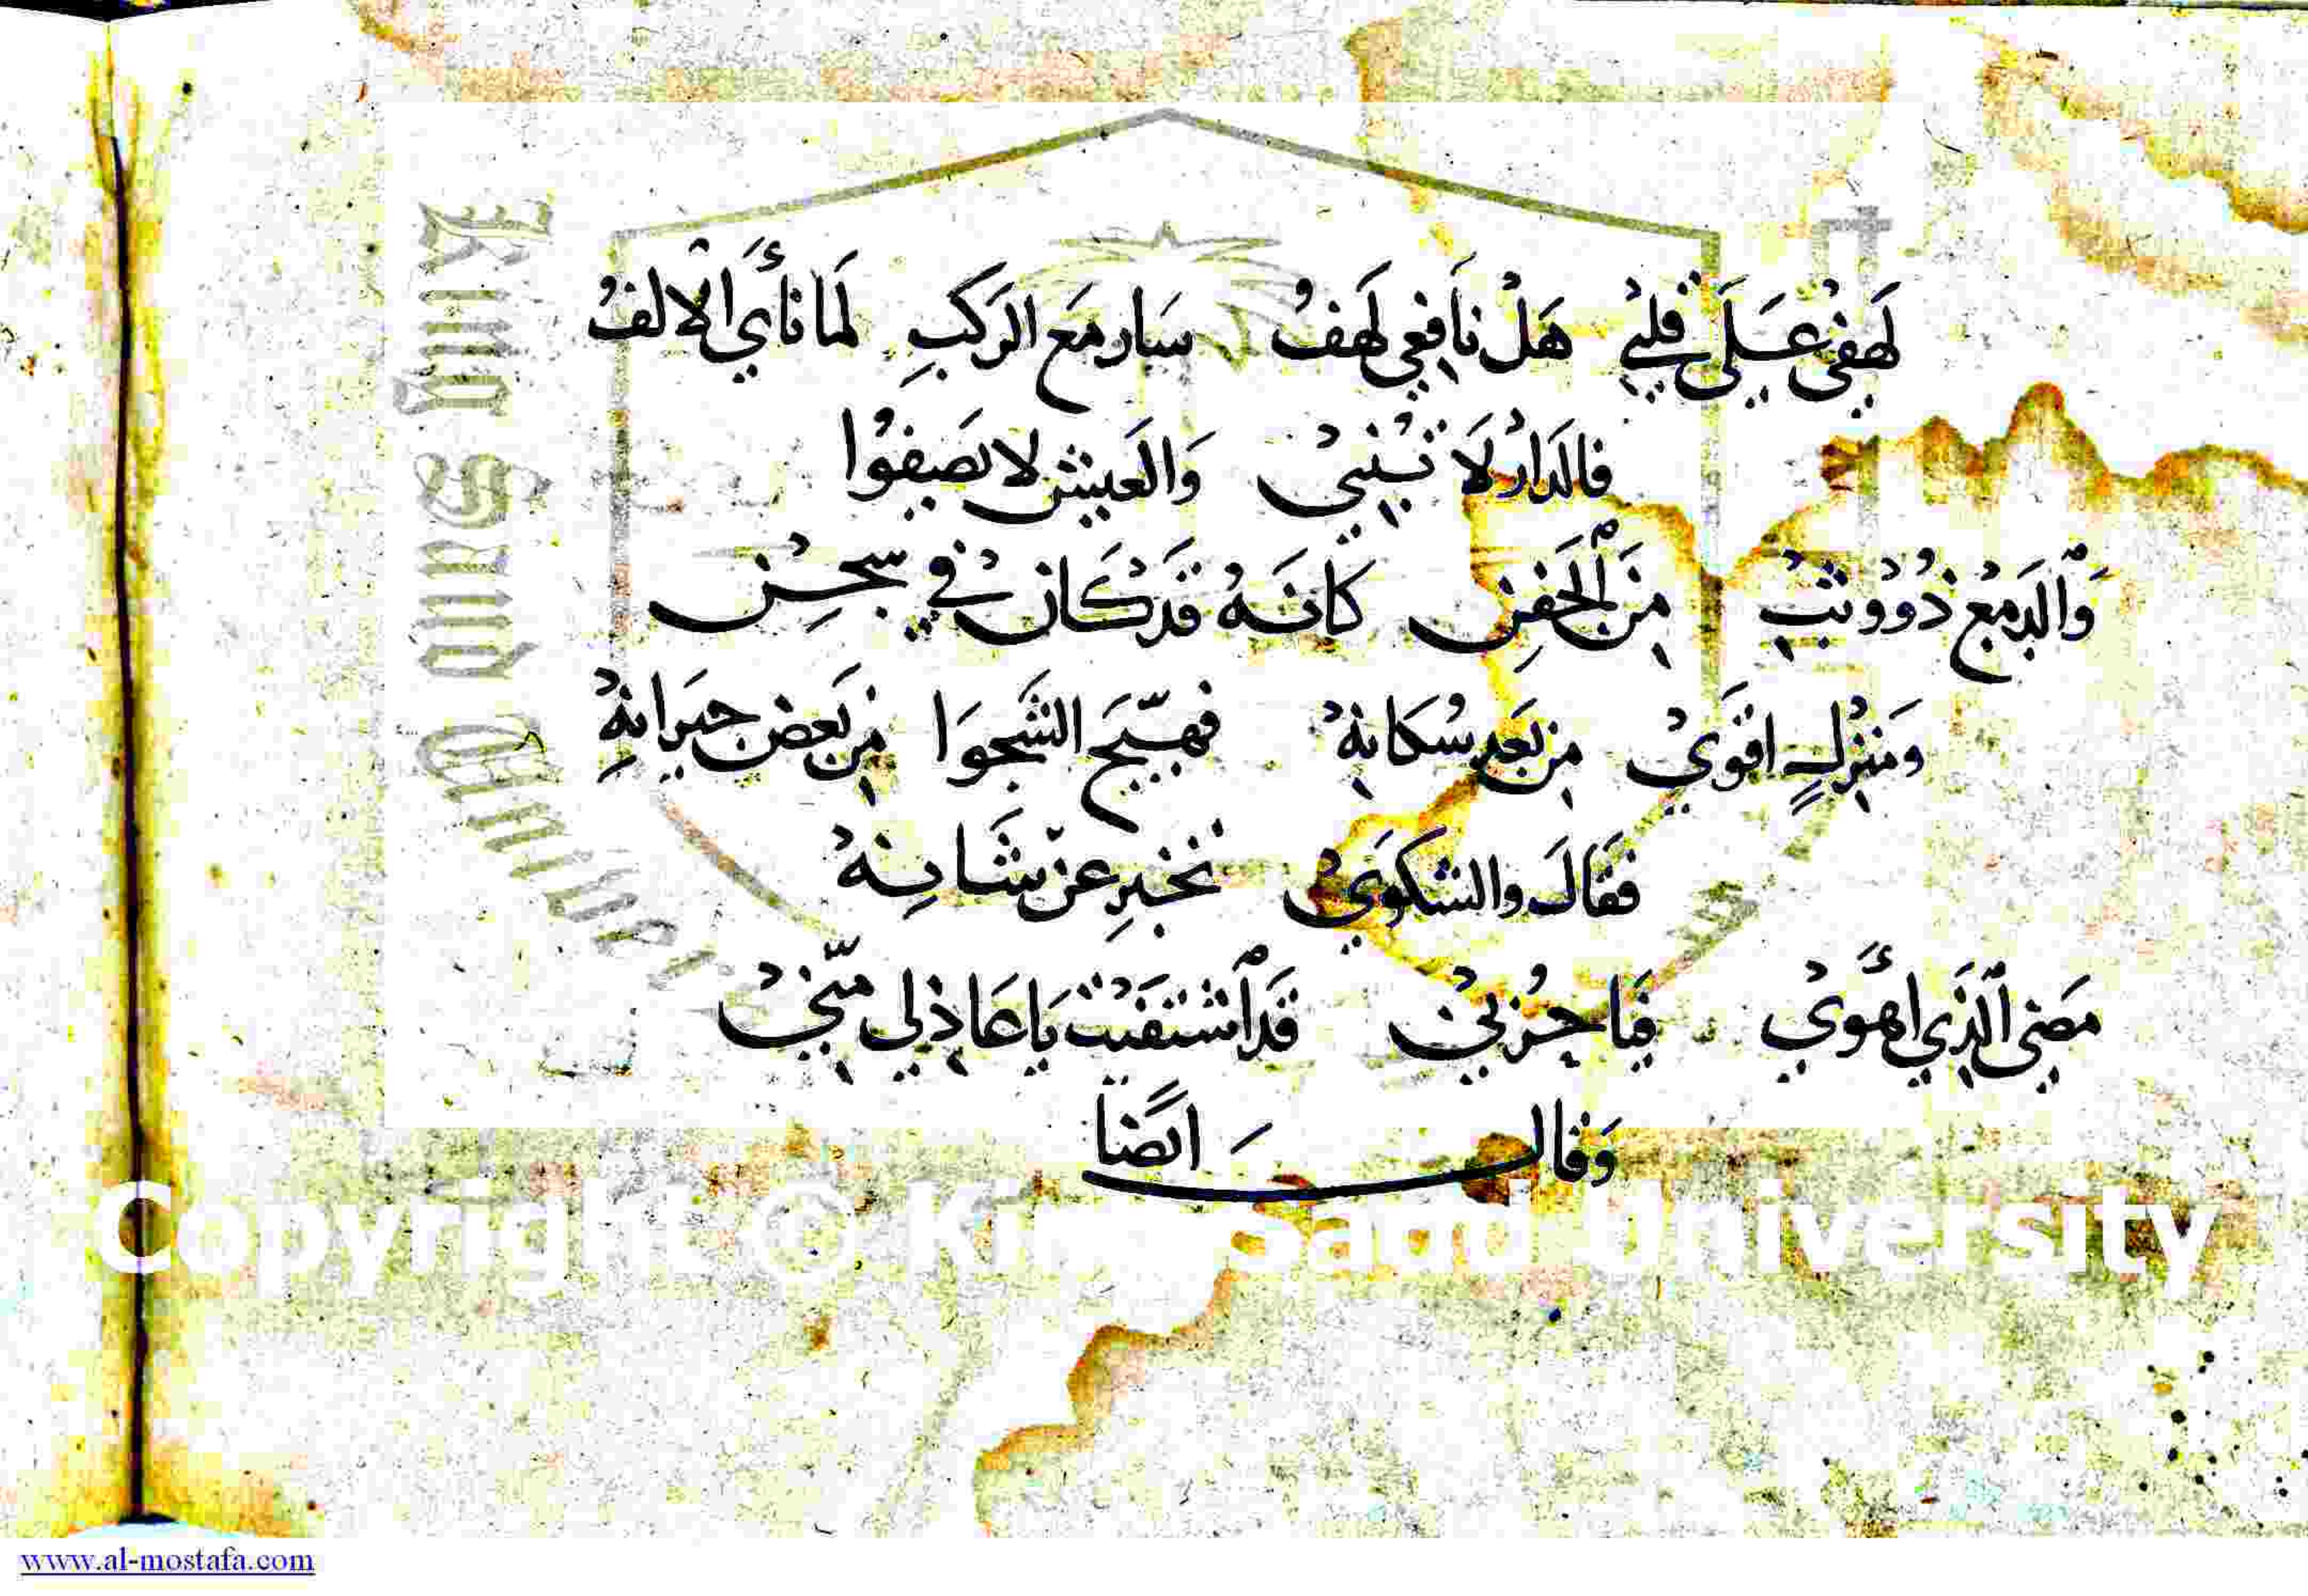 لَهفي عَلَى قلبي هَلْ نَافعي لَهفُ سَار مَع الرَكبِ لَما نَأَي الْالفُ
فالدَارُ لَا تُبْنيْ وَالعَيش لا يَصفوُا
وَالدَمعُ ذُو وثبْ مِنَ الجَفنِ كَانَهُ قَدْ كَانَ فيْ سجْنِ
وَمَنزلٍ اقوَيْ من بَعد سُكانهْ فهيّجَ الشَجوَا من بَعض جيرَانهِْ
فقَالَ والشكوَيْ تخبرِ عن شَانِهْ
مَضي الذَي أهوَيْ فيَا حُزنيْ قَد اشتفَيْتَ يَا عَاذلي منّيْ
وَقال ايَضًا
King Saud Univers
Copyright © King Saud University
www.al-mostafa.com